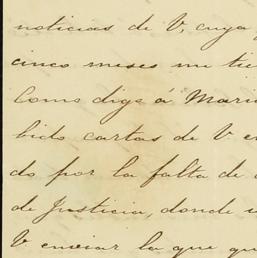 noticias de V, cuya
cinco meses me tie
Como dige á Mari
bido cartas de V e
do por la falta de
de Justicia, donde
V enviar la que qu